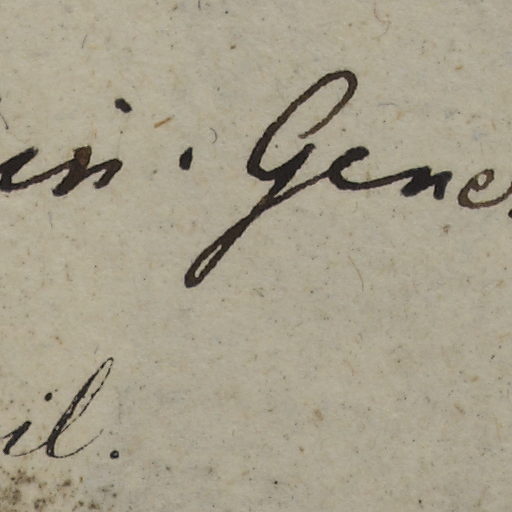 in. Gene
il.